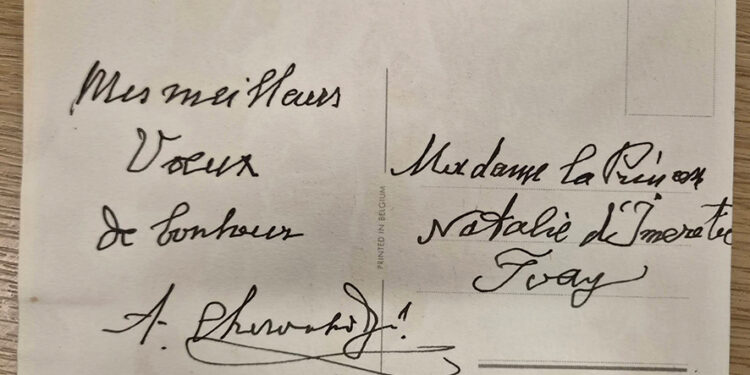 Mes meilleurs
Voeux
de bonheur
A.
PRINTED IN BELGIUM
Madame la
Natalie d'Imeretie